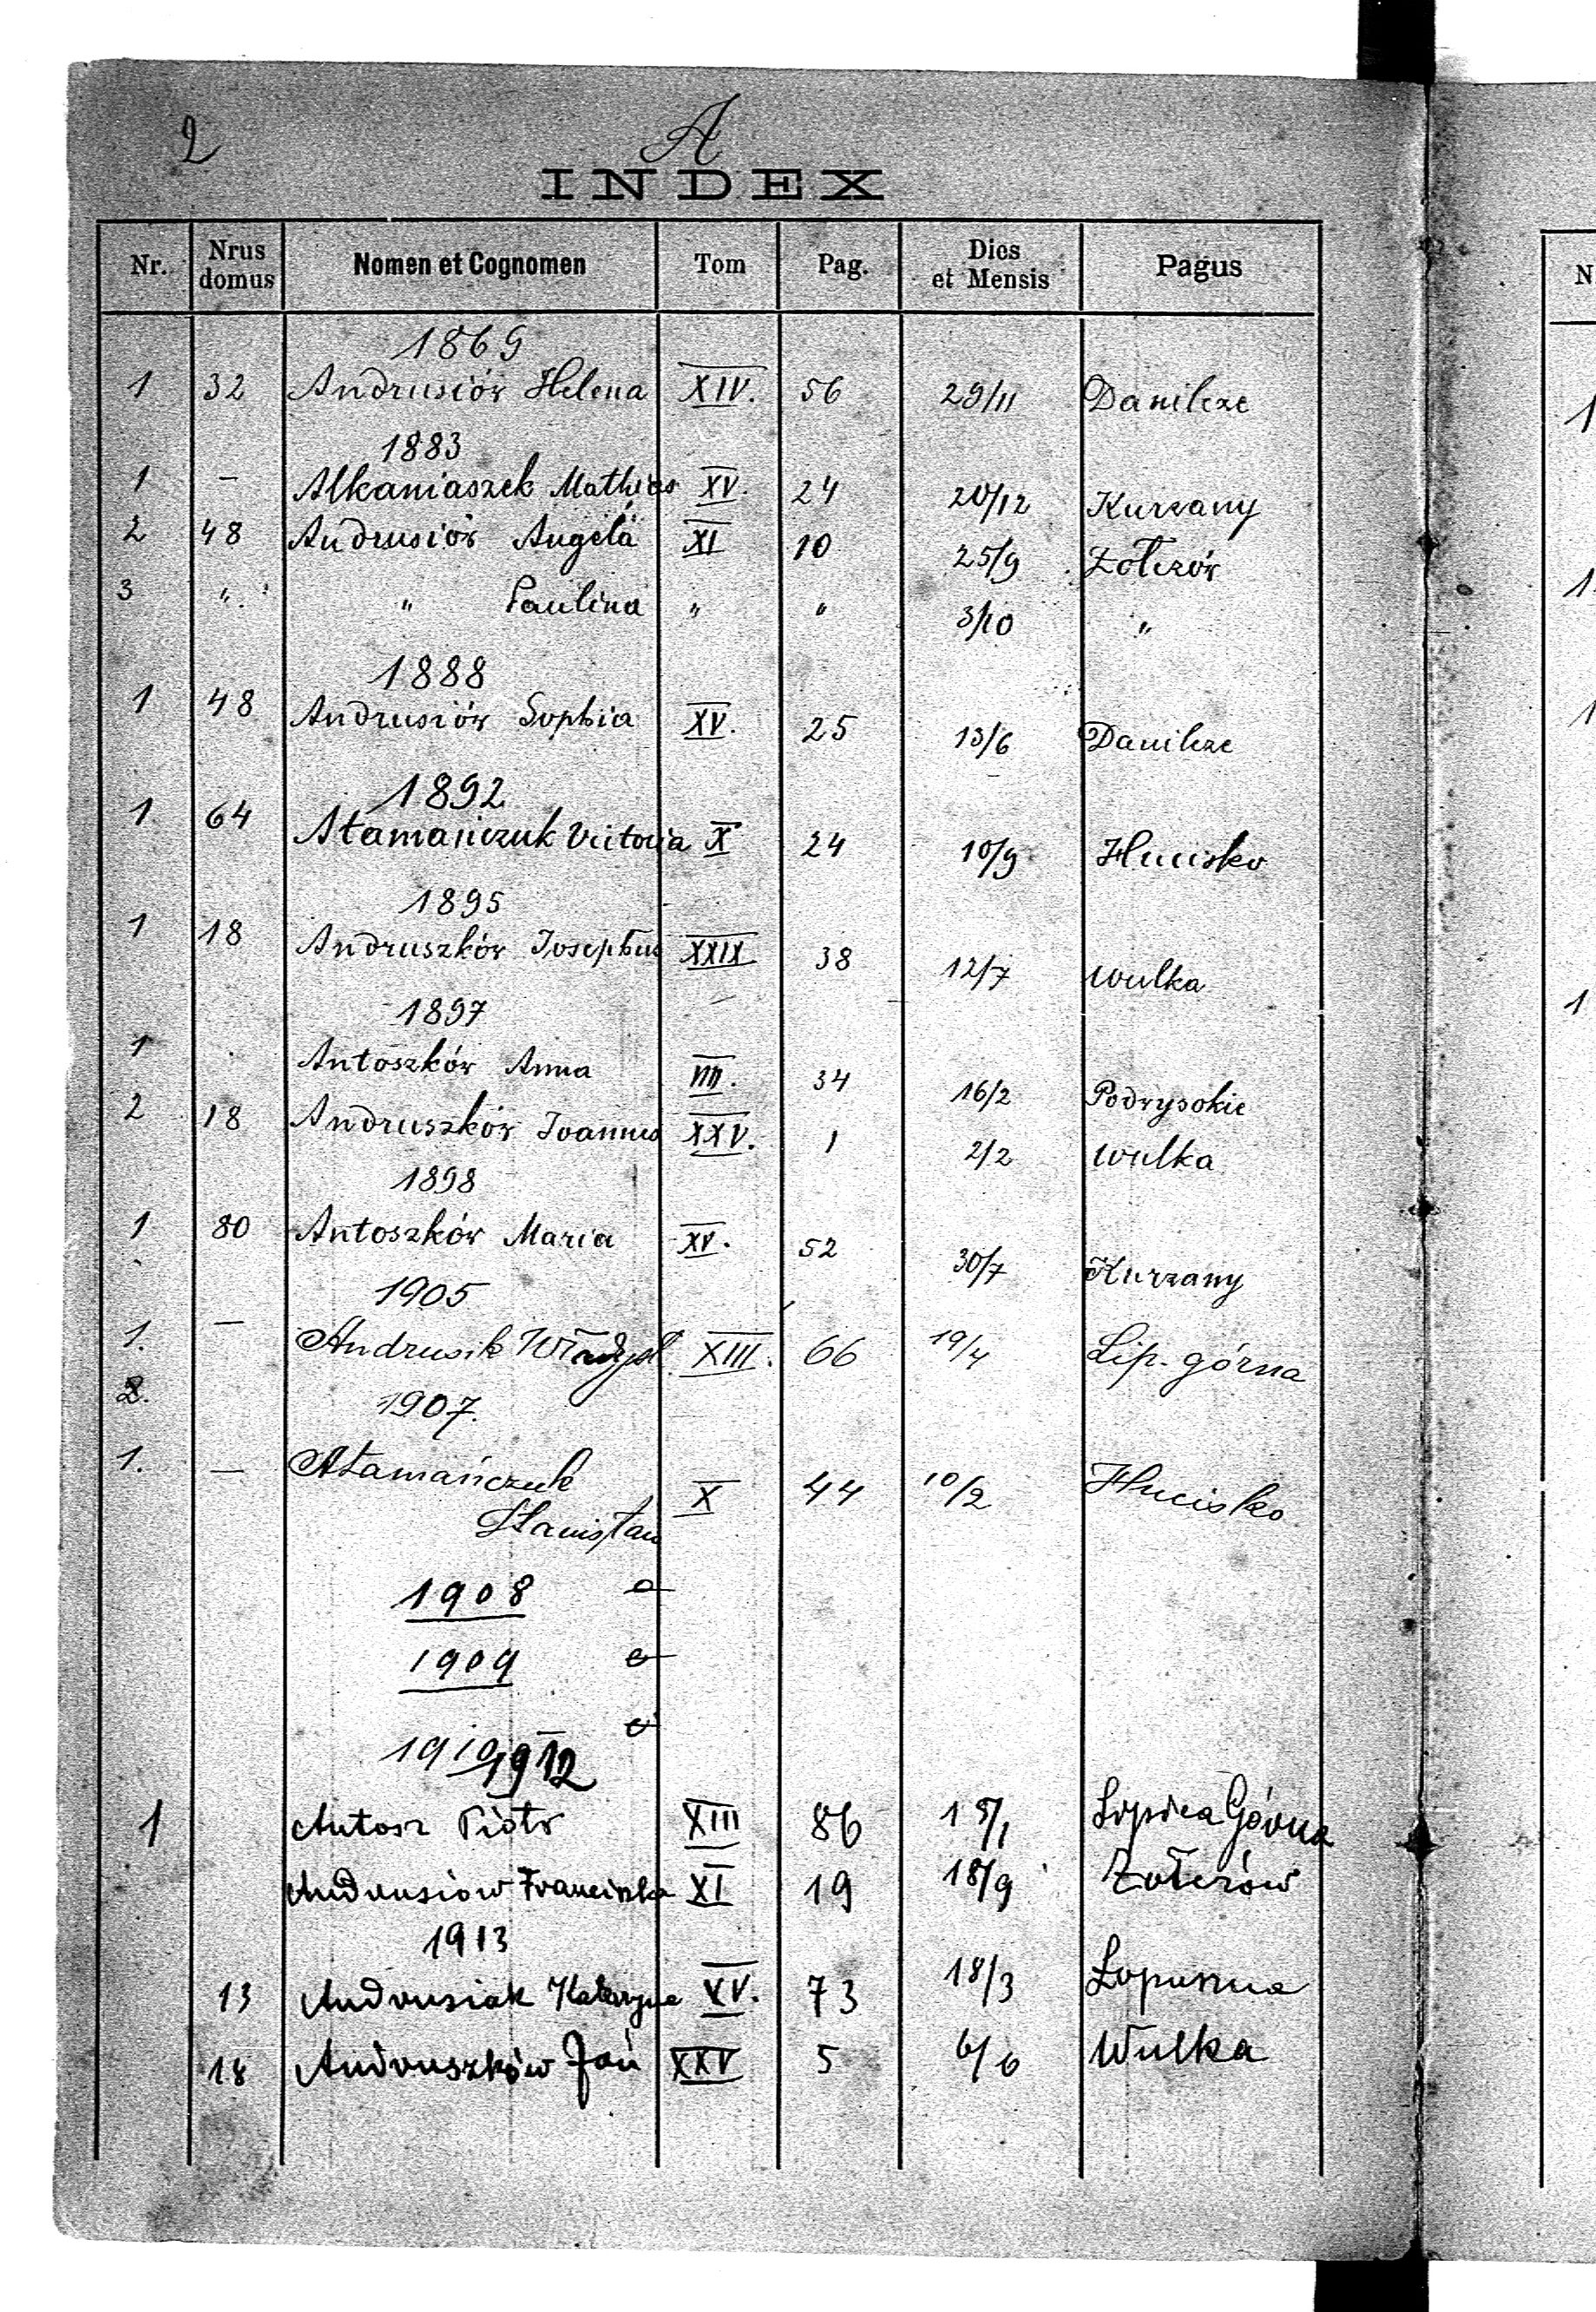 2
A
INDEX
Nr. Nrus domus Nomen et Cognomen Tom Pag. Dies et Mensis Pagus
1869
1 32 Andrusiów Helena XIV. 56 29/11 Danilcze
1883
1 — Alkaniaszek Mathias XV. 24 20/12 Kurzany
2 48 Andrusiów Angela XI 10 25/9 Żołczów
3 " " Paulina " " 3/10 "
1888
1 48 Andrusiów Sophia XV. 25 13/6 Danilcze
1892
1 64 Atamańczuk Victoria X 24 10/9 Hucisko
1895
1 18 Andruszków Josephus XXIX 38 12/7 Wulka
1897
1 Antoszków Anna 34 16/2 Podwysokie
2 18 Andruszków Joannes XXV. 1 2/2 Wulka
1898
1 80 Antoszków Maria XV. 52 30/7 Kurzany
1905
1. — Andrusik Władysł. XIII. 66 19/4 Lip. górna
2.
1907.
1. — Atamańczuk
Stanisław X 44 10/2 Hucisko
1908
1909
1910 1912
1 Antosz Piotr XIII 86 Lipica Górna
Andrusiow Franciszka XI 19 18/9 Żołczów
1913
13 Andrusiak Katarzyna XV. 73 18/3 Łopuszna
18 Andruszków Jan XXV 5 6/6 Wulka
N
1
1
1
1